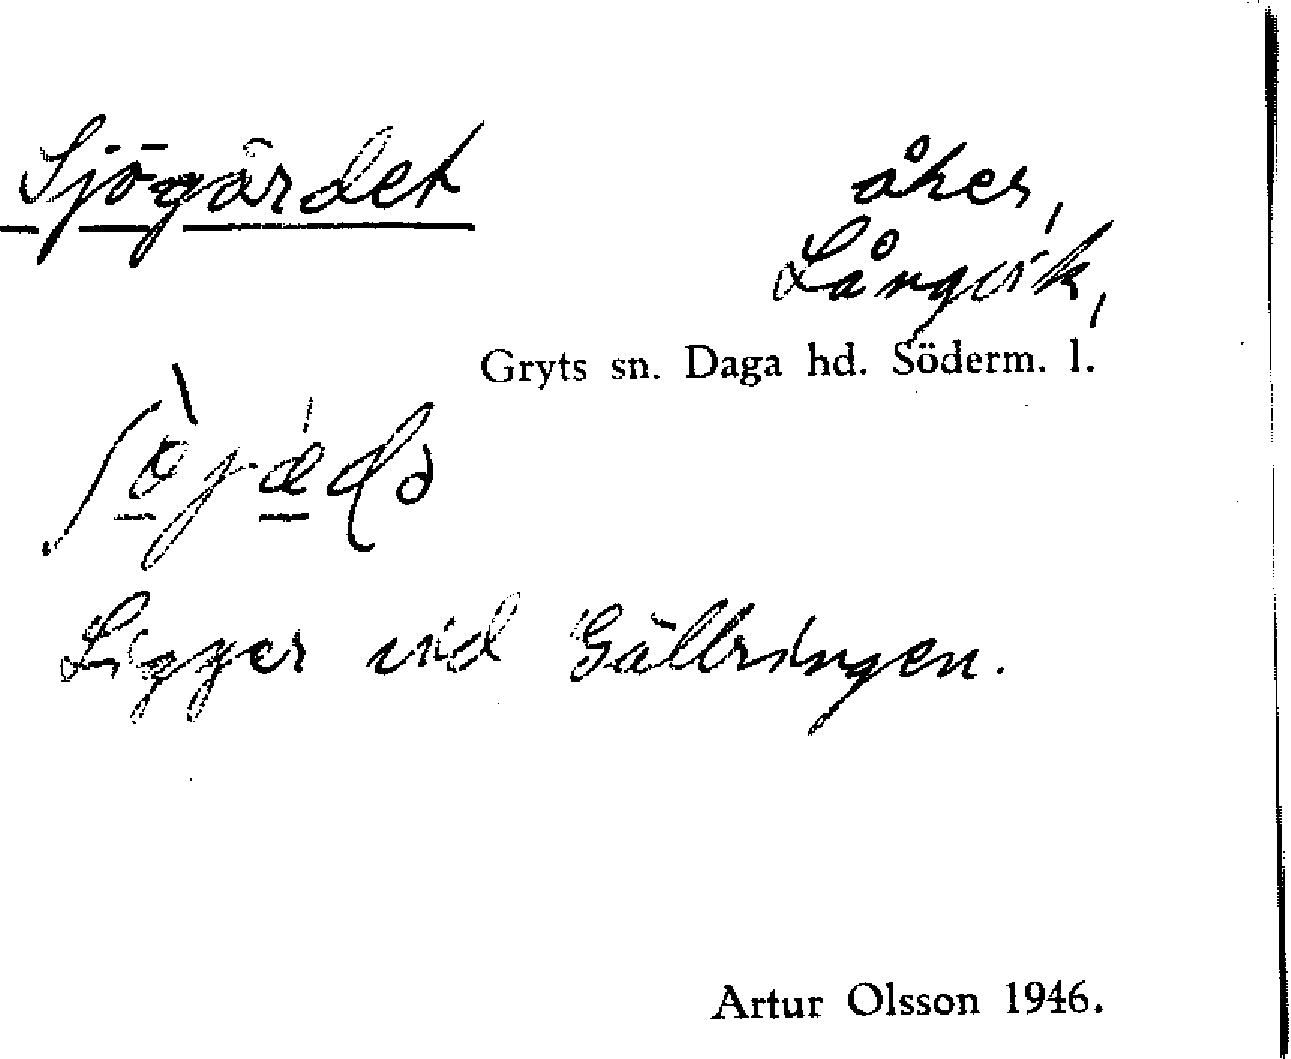 Sjögärdet
åker,
Långvik,
Gryts sn. Daga hd. Söderm. l.
Ligger vid Gällringen.
Artur Olsson 1946.